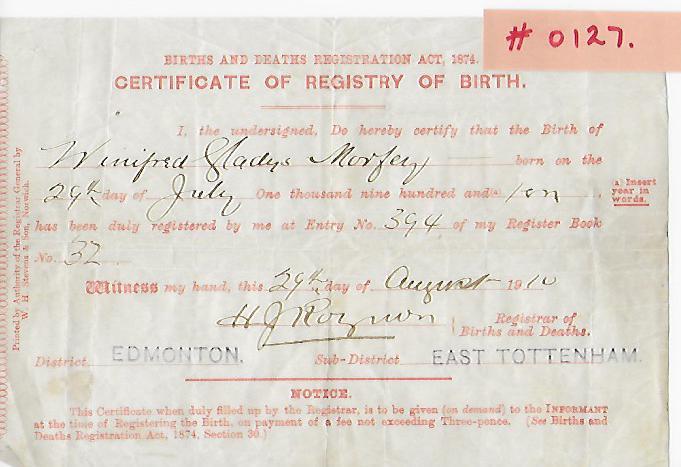 # 0127.
BIRTHS AND DEATHS REGISTRATION ACT, 1874.
CERTIFICATE OF REGISTRY OF BIRTH.
I, the undersigned, Do hereby certify that the Birth of
Winifred Gladys Morfey born on the
29th day of July One thousand nine hundred and (a) ten.
(a) Insert year in words.
has been duly registered by me at Entry No. 394 of my Register Book
No. 32
Witness my hand, this 29th day of August 1910
H J Registrar of
Births and Deaths.
District EDMONTON. Sub-District EAST TOTTENHAM.
NOTICE.
This Certificate when duly filled up by the Registrar, is to be given (on demand) to the INFORMANT
at the time of Registering the Birth, on payment of a fee not exceeding Three-pence. (See Births and
Deaths Registration Act, 1874, Section 30.)
Printed by Authority of the Registrar General by
W. H. Stevens & Son, Norwich.